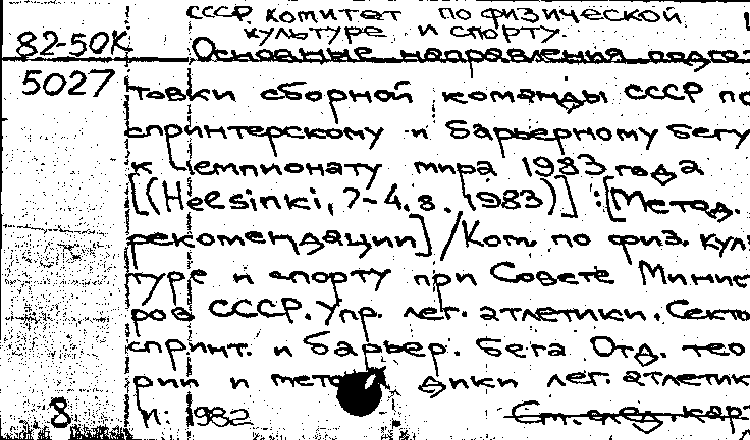 СССР. Комитет по физической
культуре и спорту.
82-50К Основные направления подго
5027 товки сборной команды СССР по
спринтерскому и барьерному бегу
к чемпионату мира 1983 года
[(Helsinki, 7-4.8.1983)] : [Метод.
рекомендации] / Ком. по физ. куль
туре и спорту при Совете Минис
ров СССР. Упр. лег. атлетики. Секто
спринт. и барьер. бега Отд. тео
рии и лег. атлетик
8 М: 1982 См. след. кар